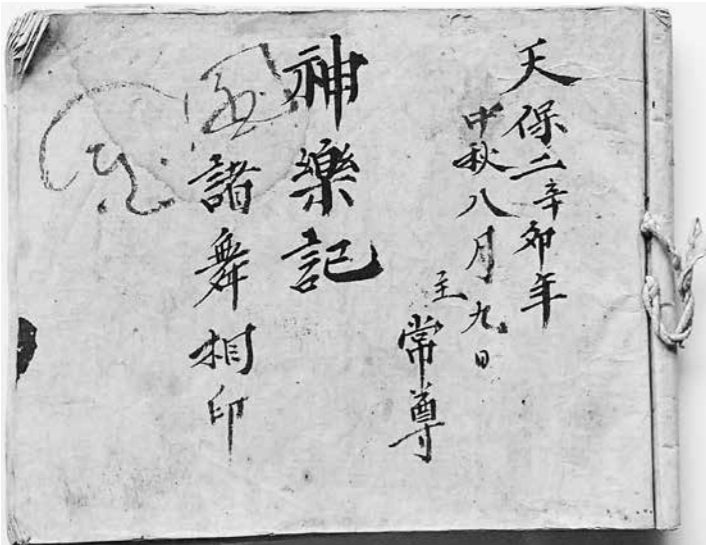 天保二辛卯年
中秋八月九日
主 常尊
神樂記
諸舞相印